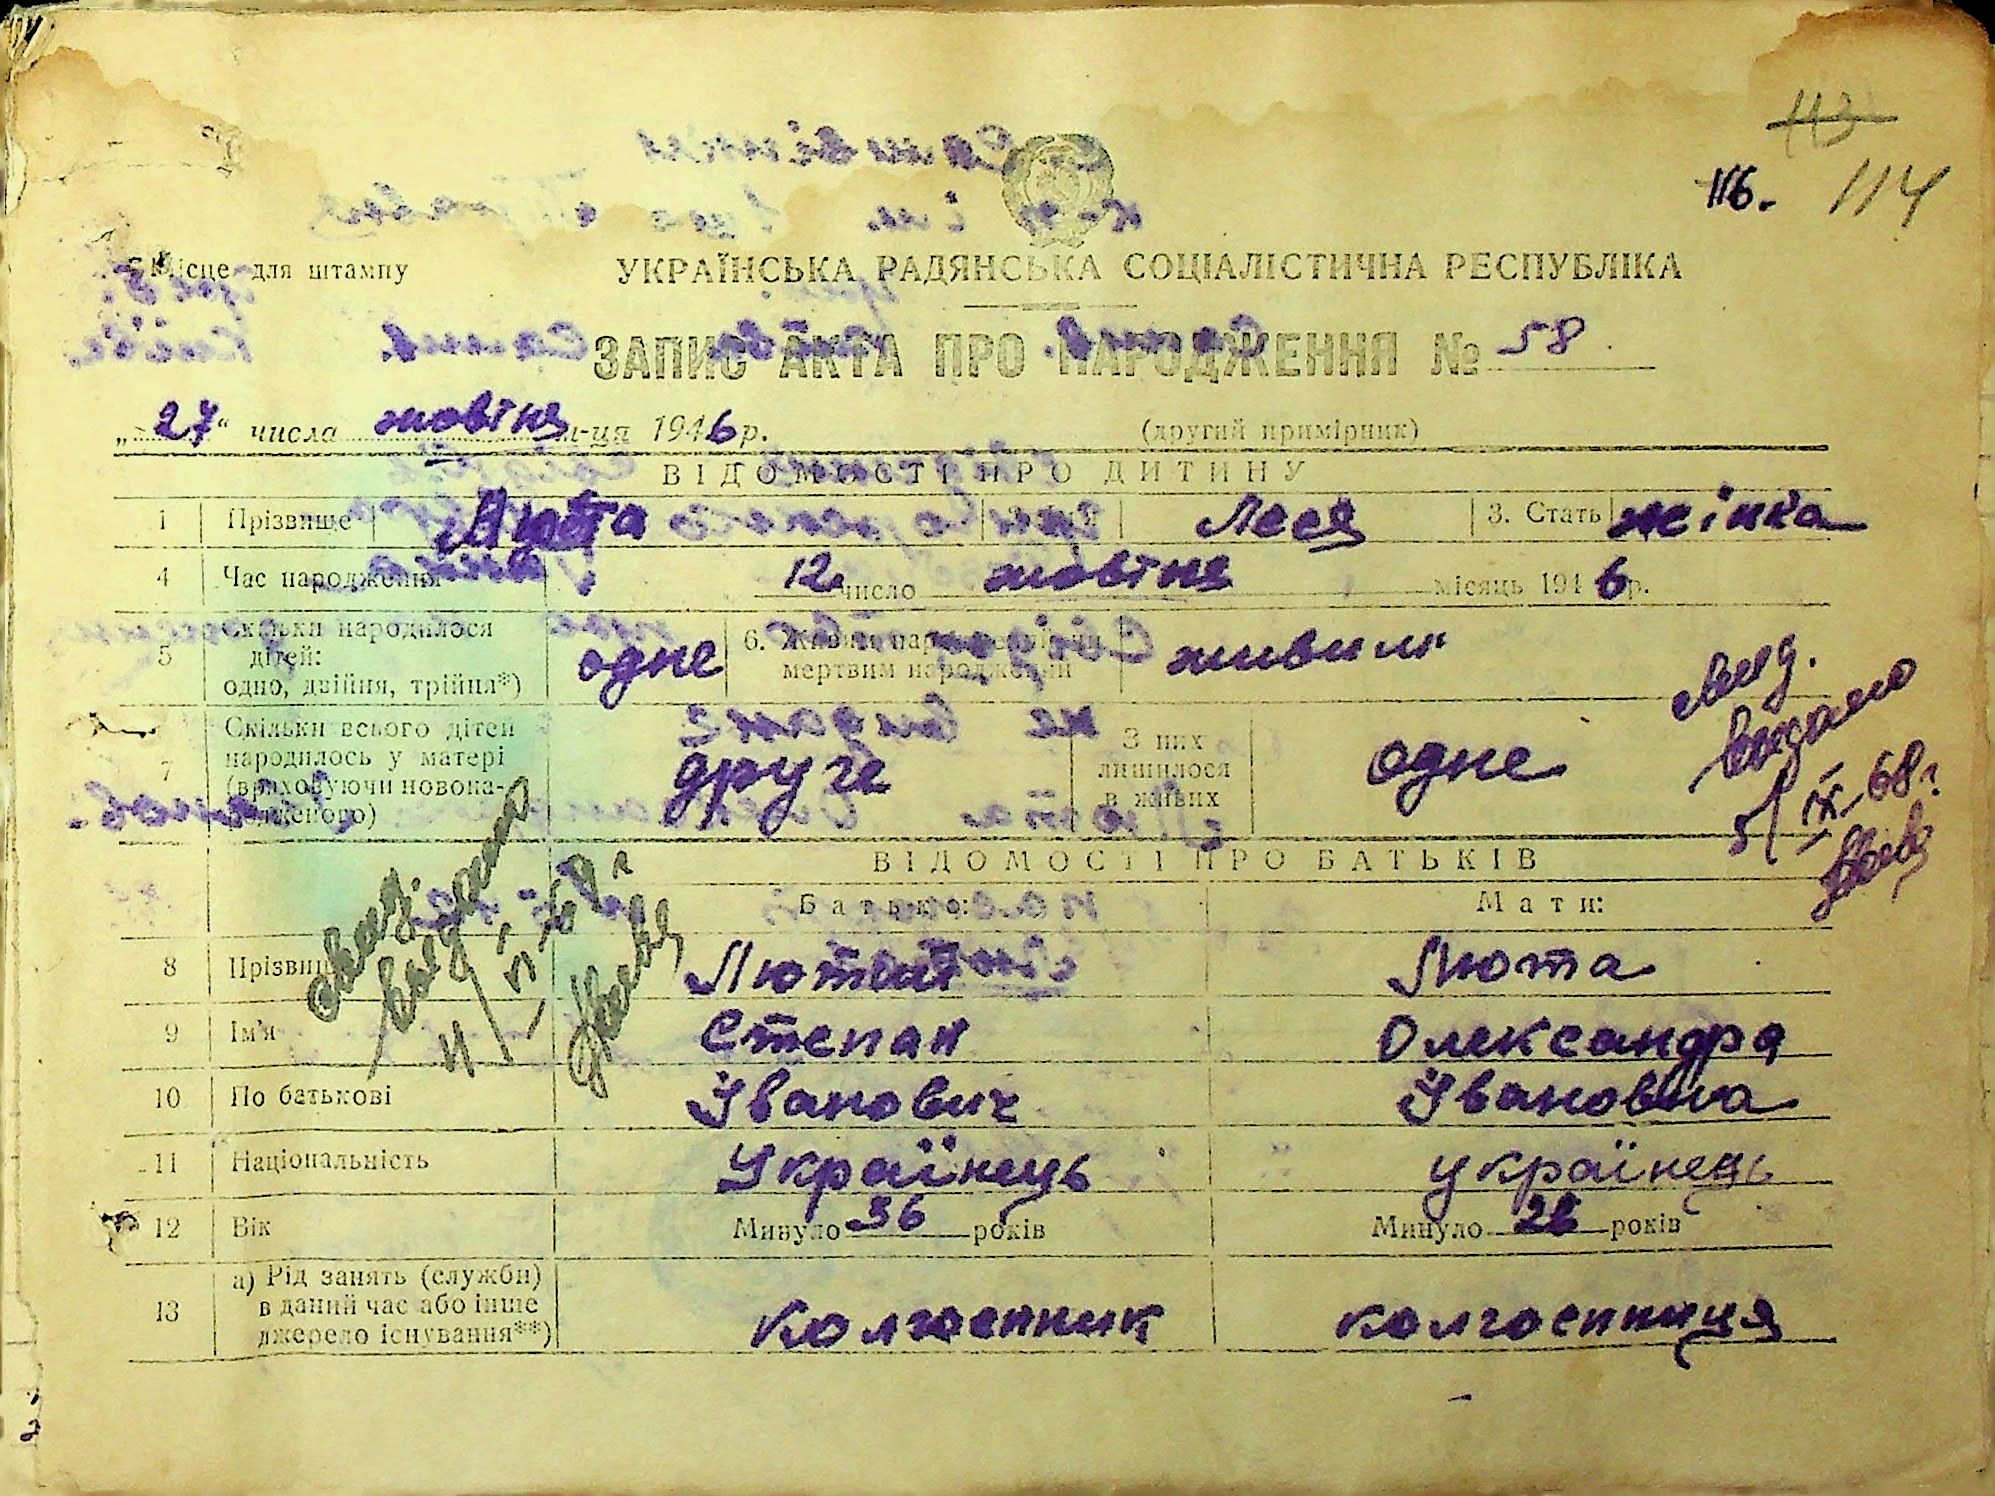 113
116. 114
Місце для штампу
УКРАЇНСЬКА РАДЯНСЬКА СОЦІАЛІСТИЧНА РЕСПУБЛІКА
ЗАПИС АКТА ПРО НАРОДЖЕННЯ № 58
„27“ числа жовтня м-ця 1946 р. (другий примірник)
ВІДОМОСТІ ПРО ДИТИНУ
1 Прізвище Люта 2. Ім'я Леся 3. Стать жінка
4 Час народження 12 число жовтня місяць 1946 р.
5 Скільки народилося дітей: одно, двійня, трійня*) одне 6. Живим народжений чи мертвим народжений живим
7 Скільки всього дітей народилось у матері (враховуючи новонародженого) друге З них лишилося в живих одне
свид. выдано 5/IX-68 г.
свид. выдано
ВІДОМОСТІ ПРО БАТЬКІВ
Батько: Мати:
8 Прізвище Лютий Люта
9 Ім'я Степан Олександра
10 По батькові Іванович Івановна
11 Національність Українець українець
12 Вік Минуло 36 років Минуло 28 років
13 а) Рід занять (служби) в даний час або інше джерело існування**) Колгоспник колгоспниця